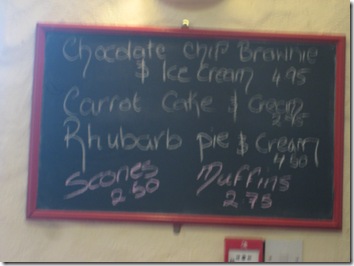 Chocolate Chip Brownie
$ Ice Cream 4.95
Carrot Cake $ Cream
Rhubarb pie $ Cream
4.50
Scones Muffins
2 50 2 75